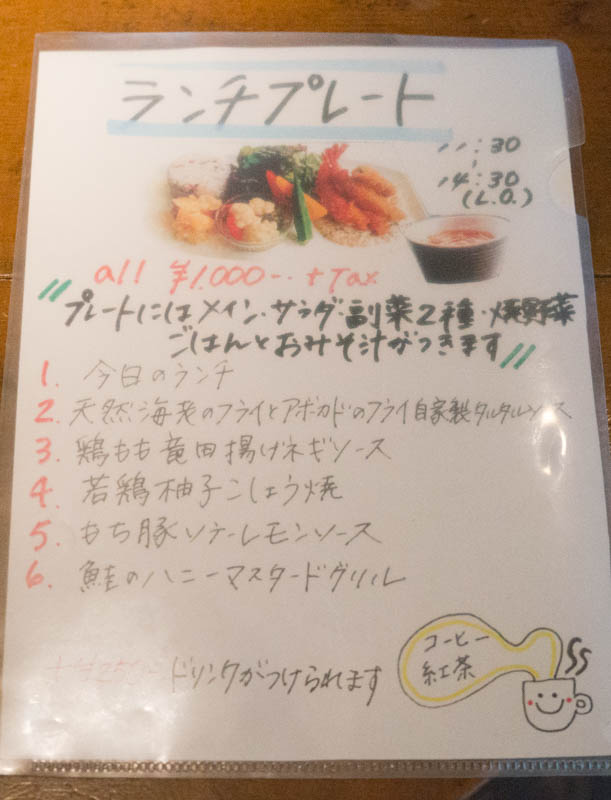 ランチプレート
11:30
~
14:30
(L.O.)
all ¥1.000-- + Tax
〃プレートにはメイン・サラダ・副菜2種・焼野菜
ごはんとおみそ汁がつきます〃
1. 今日のランチ
2. 天然海老のフライとアボカドのフライ自家製タルタルソース
3. 鶏もも竜田揚げネギソース
4. 若鶏柚子こしょう焼
5. もち豚ソテーレモンソース
6. 鮭のハニーマスタードグリル
+¥250- ドリンクがつけられます
コーヒー
紅茶